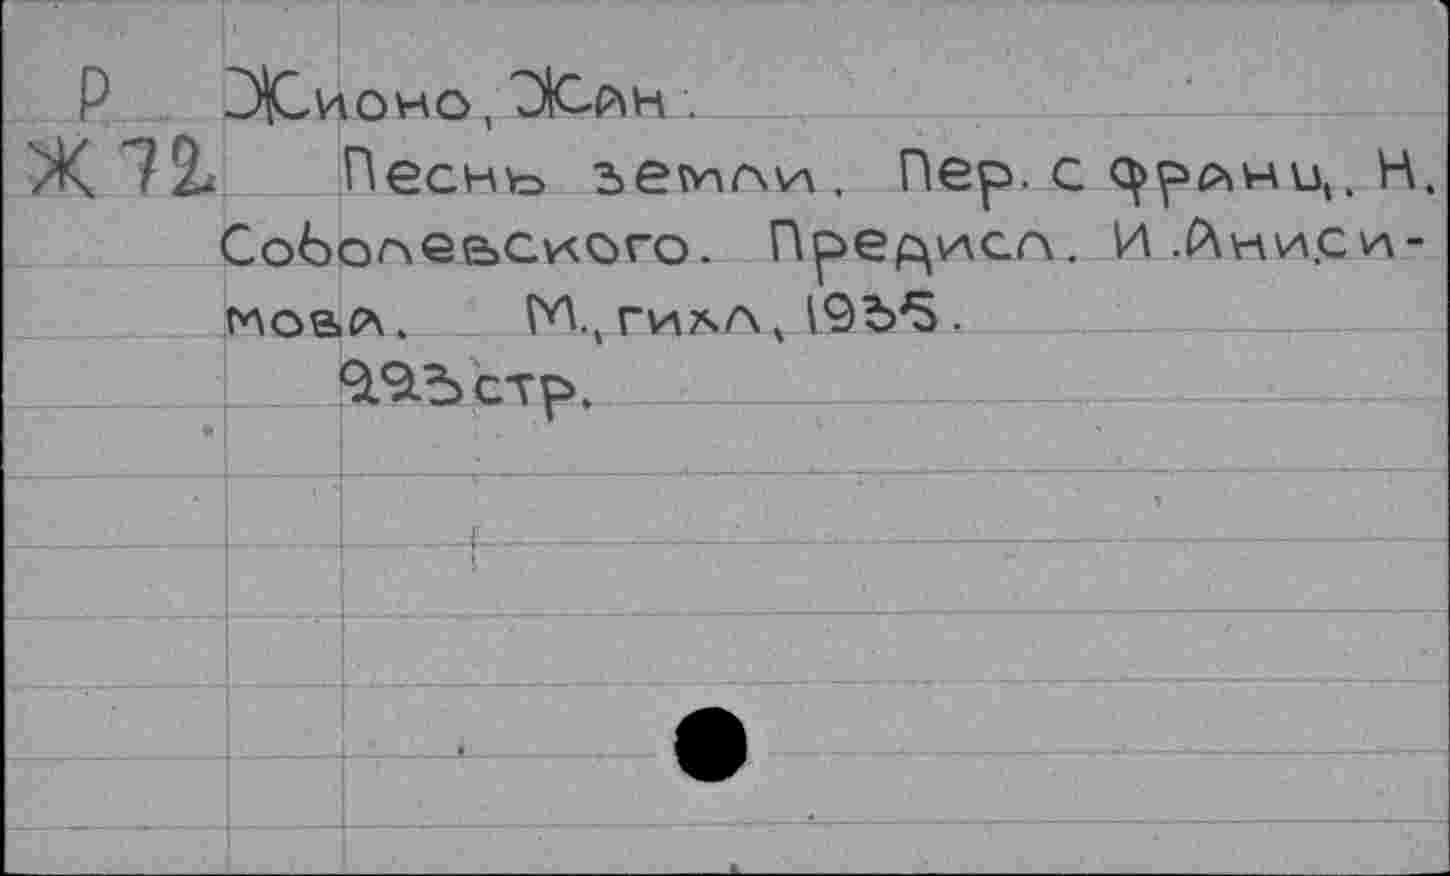 Р Жионо, Жан.
Ж72 Песнь земли. Пер. с франц. Н.
Соболевского. Предисл. И.Аниси-
мова. М., гихл, 1935.
223 стр.